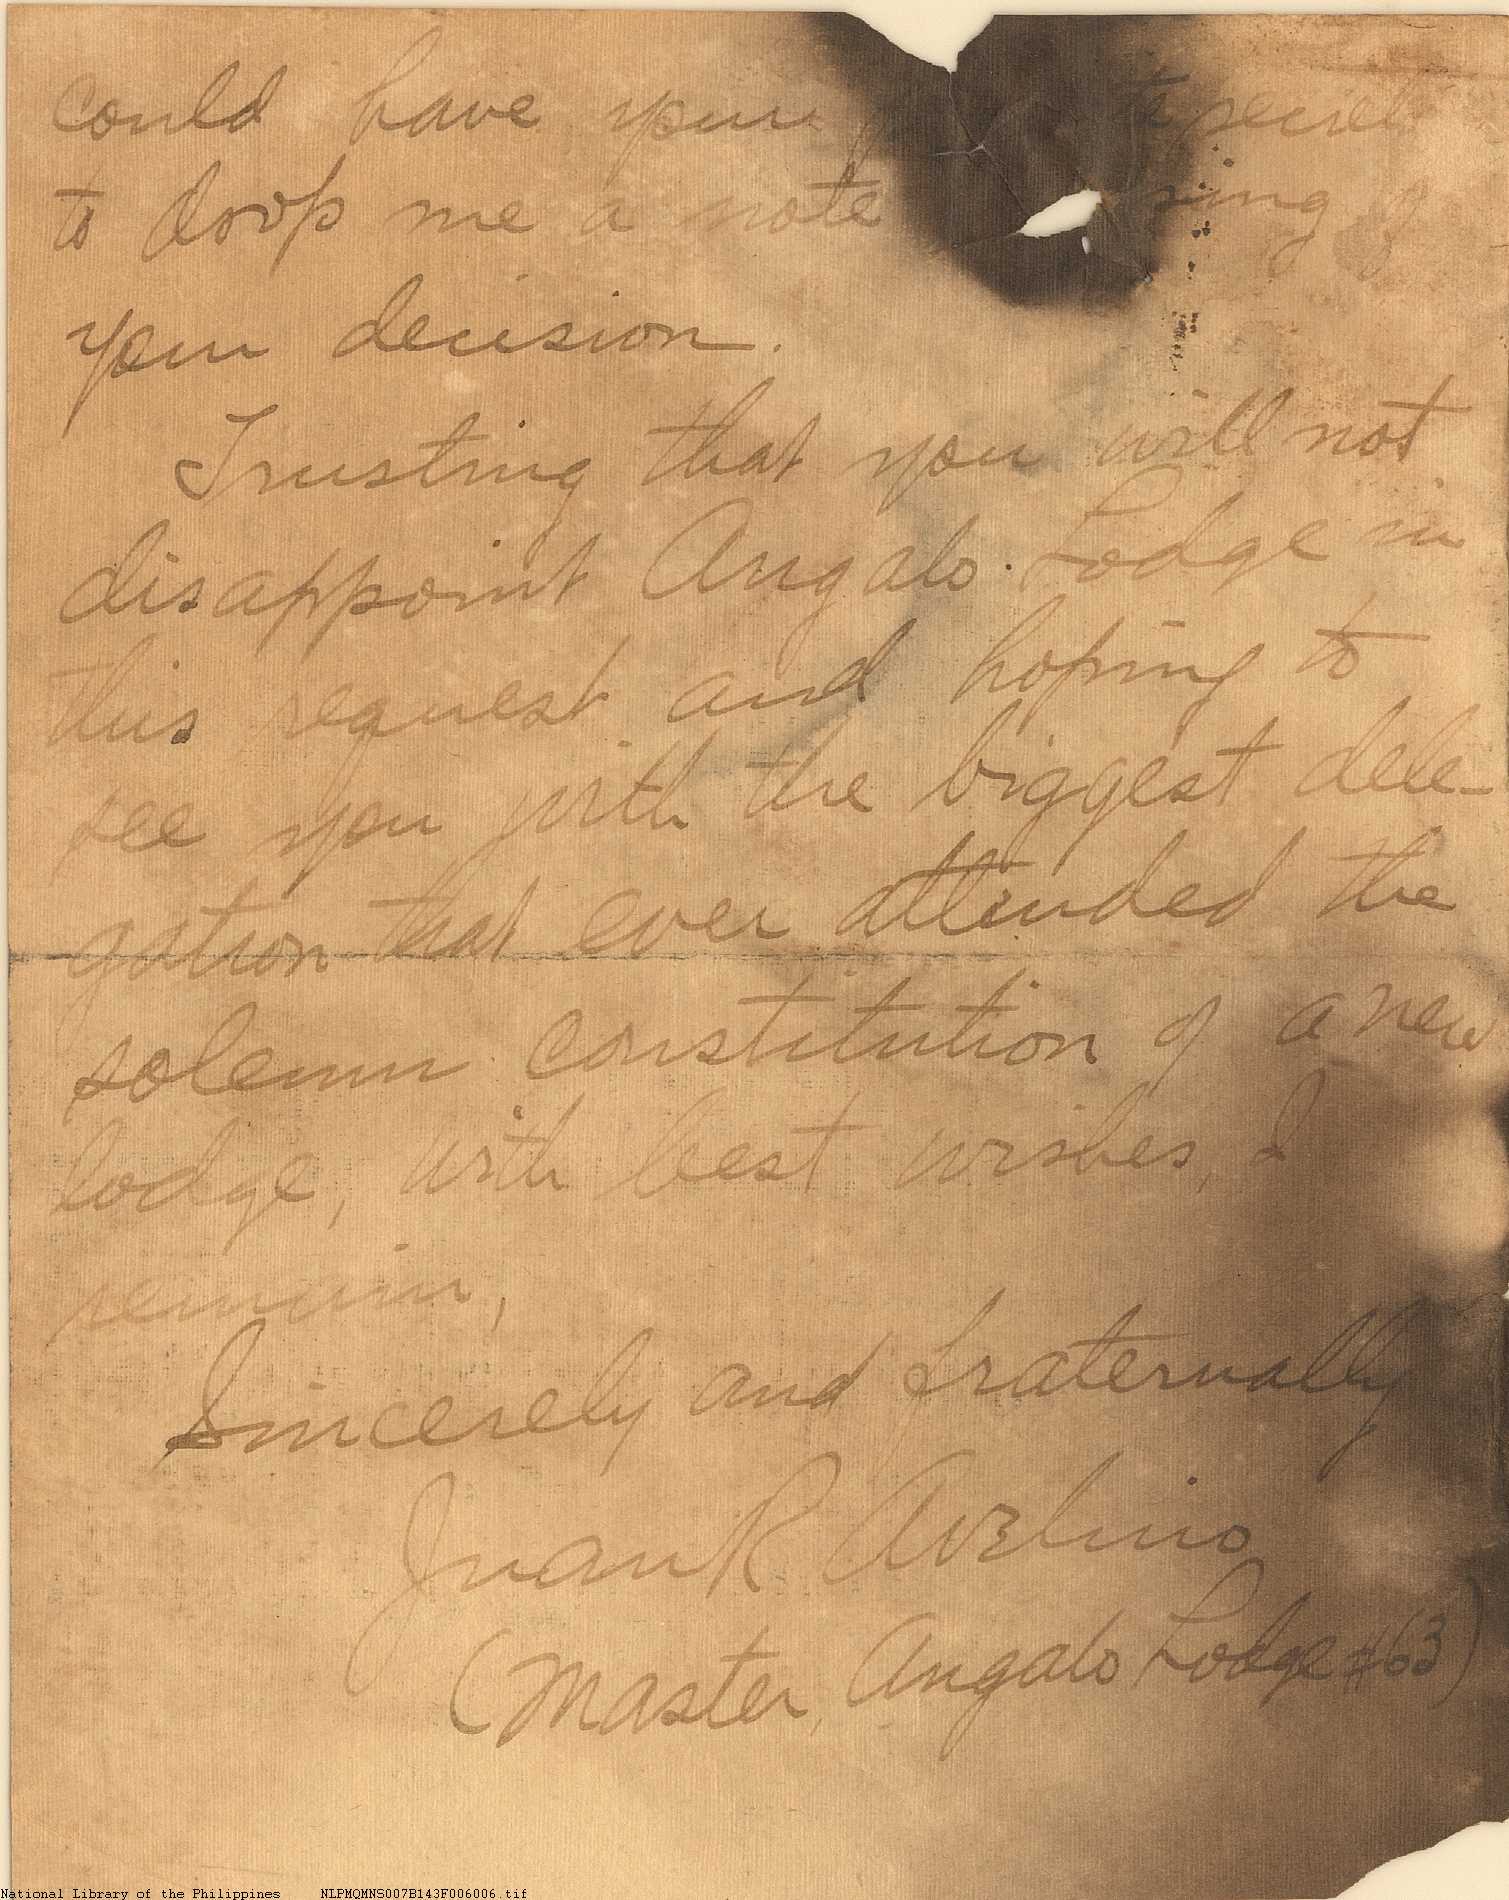 could have your
to drop me a note
your decision.
Trusting that you will not
disappoint Angalo Lodge in
this request and hoping to
see you with the biggest dele-
gation that ever attended the
solemn constitution of a new
lodge, with best wishes, I
remain,
Sincerely and fraternally
Juan R Avelino
(Master, Angalo Lodge #63)
National Library of the Philippines NLPMQMNS007B143F006006.tif